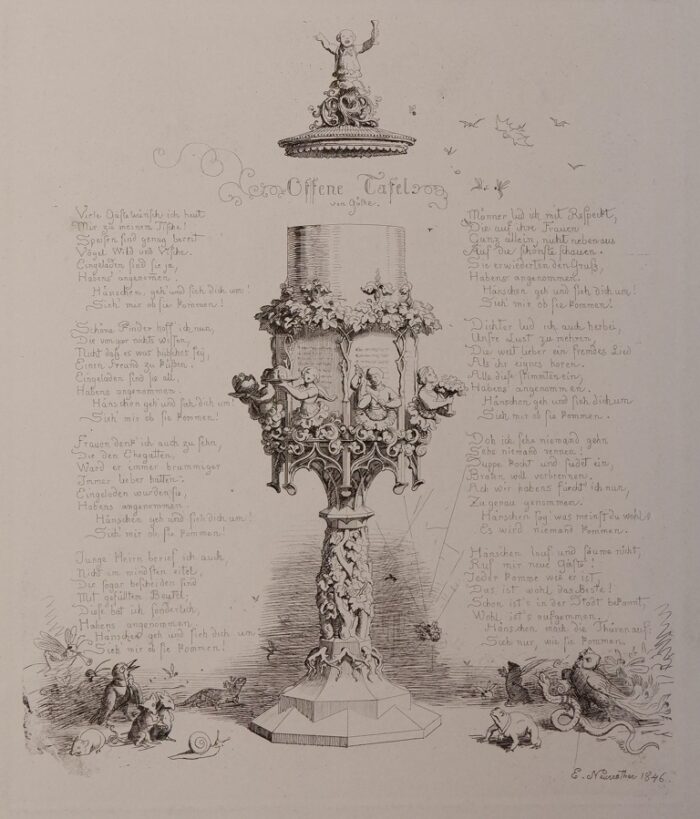 Offene Tafel
von Göthe.
Viele Gäste wünsch ich heut
Mir zu meinem Tische!
Speisen sind genug bereit
Vögel Wild und Fische.
Eingeladen sind sie ja,
Habens angenomen.
Hänschen, geh und sieh dich um!
Sieh' mir ob sie kommen!
Schöne Kinder hoff ich nun,
Die von gar nichts wissen,
Nicht daß es was hübsches sey,
Einen Freund zu küßen.
Eingeladen sind sie all,
Habens angenommen.
Hänschen geh und sieh dich um!
Sieh' mir ob sie kommen!
Frauen denk' ich auch zu sehn,
Die den Ehegatten,
Ward er immer brummiger
Immer lieber hatten.
Eingeladen wurden sie,
Habens angenommen.
Hänschen geh und sieh dich um!
Sieh' mir ob sie kommen!
Junge Herrn berief ich auch,
Nicht im mindsten eitel,
Die sogar bescheiden sind
Mit gefülltem Beutel;
Diese bat ich sonderlich,
Habens angenommen.
Hänschen geh und sieh dich um
Sieh mir ob sie kommen!
Männer lud ich mit Respect,
Die auf ihre Frauen
Ganz allein, nicht neben aus
Auf die schönste schauen.
Sie erwiederten den Gruß,
Habens angenommen!
Hänschen geh und sieh dich um!
Sieh' mir ob sie kommen!
Dichter lud ich auch herbei,
Unsre Lust zu mehren,
Die weit lieber ein fremdes Lied
Als ihr eignes hören.
Alle diese stimmten ein,
Habens angenommen.
Hänschen geh und sieh dich um
Sieh mir ob sie kommen.
Doch ich sehe niemand gehn
Sehe niemand rennen!
Suppe kocht und siedet ein,
Braten will verbrennen.
Ach wir habens fürcht' ich nun,
Zu genau genommen.
Hänschen sag was meinst du wohl!
Es wird niemand kommen.
Hänschen lauf und säume nicht,
Ruf mir neue Gäste!
Jeder komme wie er ist,
Das ist wohl das Beste!
Schon ist's in der Stadt bekannt,
Wohl ist's aufgenommen.
Hänschen mach die Thüren auf:
Sieh nur, wie sie kommen.
E. Neureuther 1846.